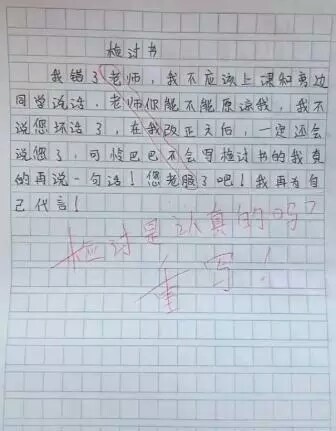 检讨书
我错了老师，我不应该上课和旁边
同学说话，老师你能不能原谅我，我不
说您坏话了，在我改正之后，一定还会
说您了，可怜巴巴不会写检讨书的我真
的再说一句话！您老服了吧！我再为自
己代言！
检讨是认真的吗？
重写！